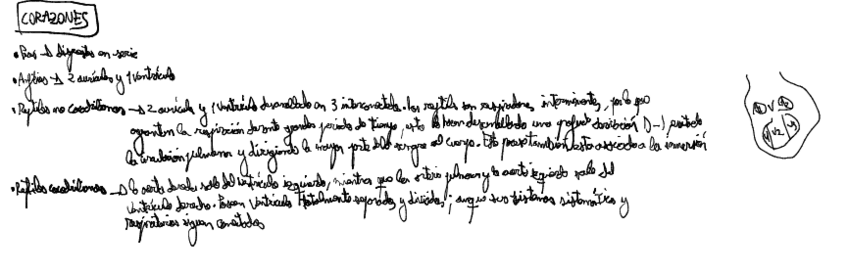 CORAZONES
• Peces → dispuestos en serie
• Anfibios → 2 aurículas y 1 ventrículo
• Reptiles no cocodrilianos → 2 aurículas y 1 ventrículo desarrollado en 3 interconectados. Los reptiles son respiradores intermitentes, por lo que
aguantan la respiración durante grandes periodos de tiempo, esto lo hacen desarrollando una derivación D-I,
la circulación pulmonar y dirigiendo la mayor parte de la sangre al cuerpo. Esto también está asociado a la inmersión
• Reptiles cocodrilianos → la aorta derecha sale del ventrículo izquierdo, mientras que la arteria pulmonar y la aorta izquierda salen del
ventrículo derecho. Poseen ventrículos totalmente separados y divididos; aunque sus sistemas sistemáticos y
respiratorios siguen conectados